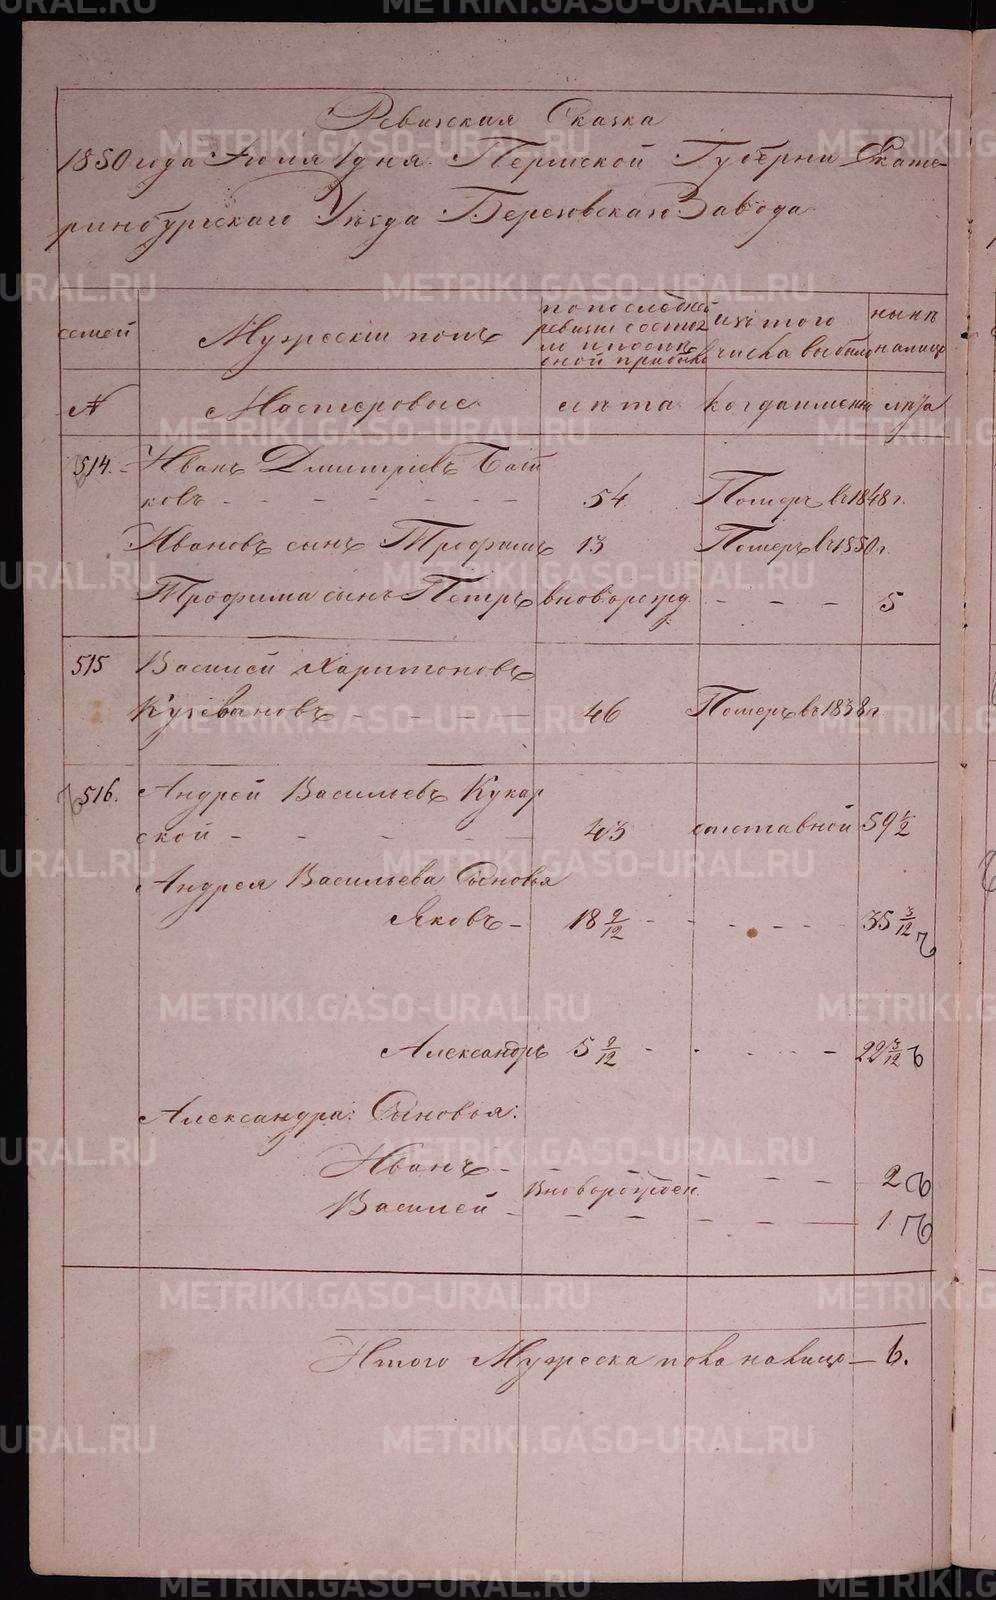 Ревизская Сказка
1850 года Июля 1 дня Пермской Губерни Екате-
ринбургскаго Уезда Березовскаго Завода
семей
Мужескій полъ
по последней
ревизіи состоя
ло и после
оной прибыло
изъ того
числа выбыло
ныне
налицо
№
Мастеровые
лета
когда именно
лета
514.
Иванъ Дмитріевъ
ковъ - - - - - - -
54
Померъ въ 1848 г.
Ивановъ сынъ Трофимъ
13
Померъ въ 1850 г.
Трофима сынъ Петръ
вноворожд.
- - - -
5
515
Василей Харитоновъ
Кузевановъ - - - -
46
Померъ въ 1838 г.
516.
Андрей Васильевъ Кукар
ской - - - -
43
отставной
59 1/2
Андрея Васильева Сыновья
Яковъ -
18 9/12
- - - - -
35 3/12
Александръ
5 9/12
- - - - -
22 3/12
Александра: Сыновья:
Иванъ -
вноворожден
- - -
2
Василей -
- - - - -
1
Итого Мужеска пола налицо - 6.
METRIKI.GASO-URAL.RU